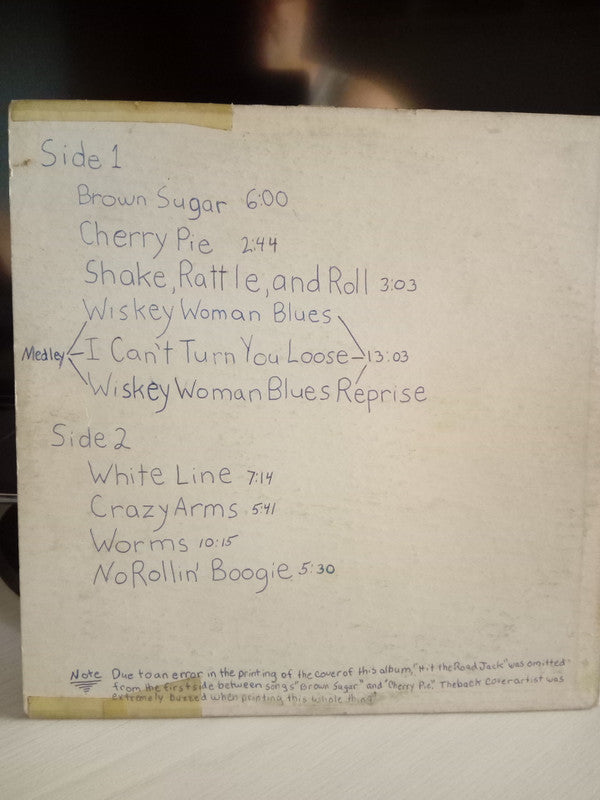 Side 1
Brown Sugar 6:00
Cherry Pie 2:44
Shake, Rattle, and Roll 3:03
Wiskey Woman Blues
Medley I Can't Turn You Loose 13:03
Wiskey Woman Blues Reprise
Side 2
White Line 7:14
Crazy Arms 5:41
Worms 10:15
No Rollin' Boogie 5:30
Note Due to an error in the printing of the cover of this album, "Hit the Road Jack" was omitted
from the first side between songs "Brown Sugar" and "Cherry Pie." The back cover artist was
extremely buzzed when printing this whole thing"